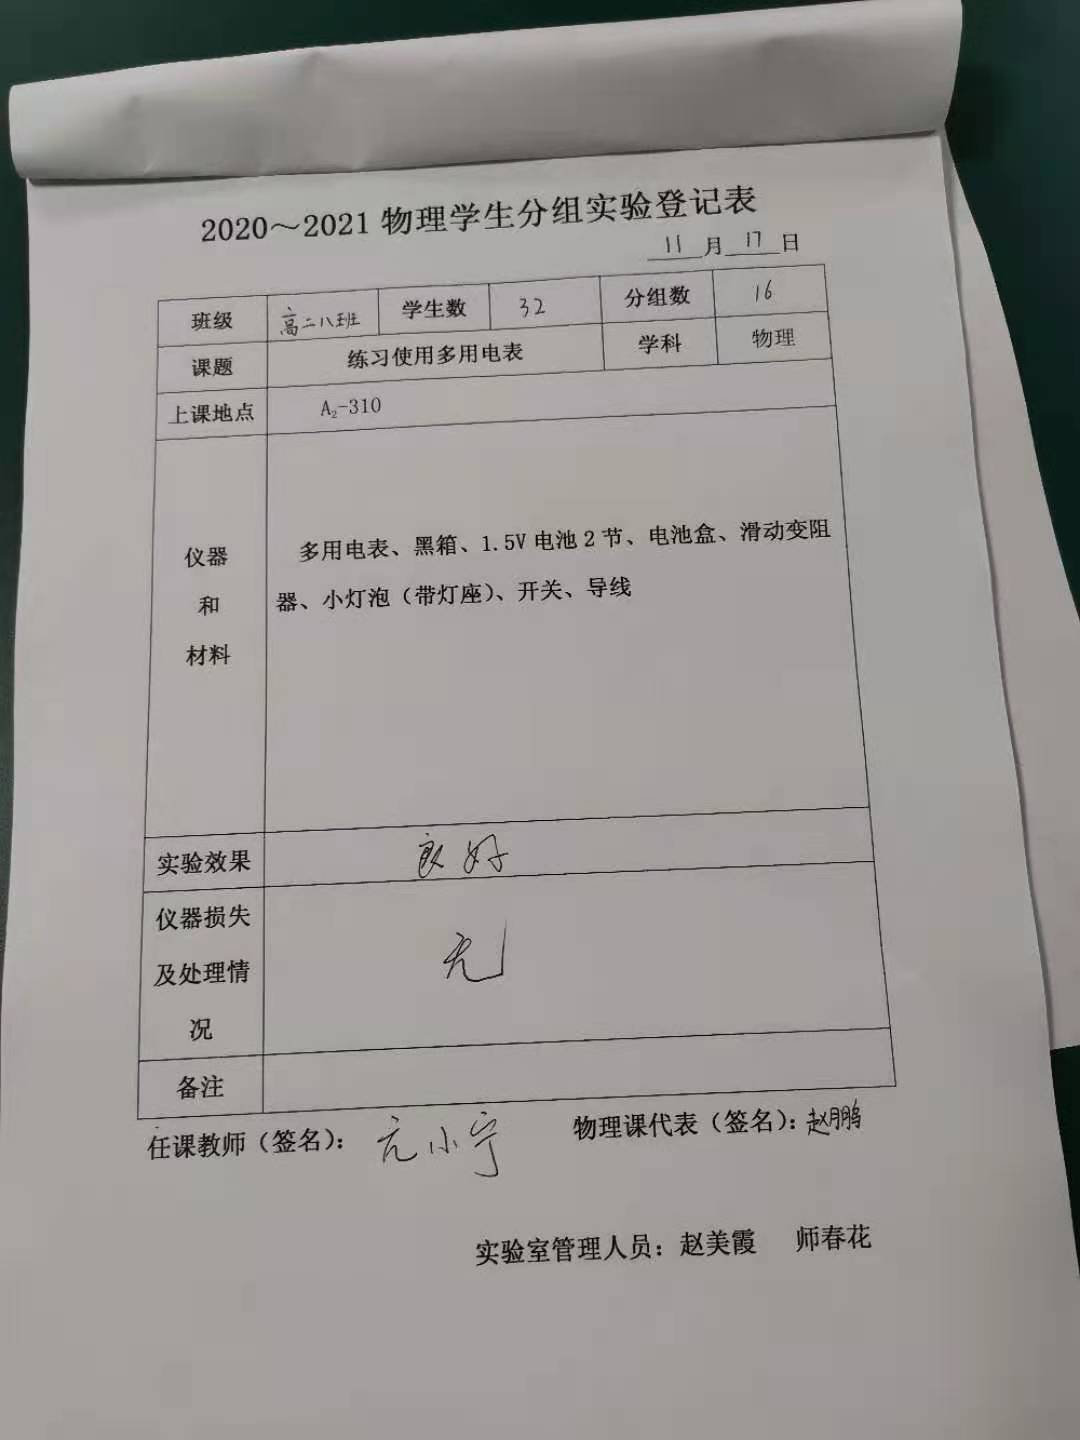 2020～2021 物理学生分组实验登记表
11月17日
班级 高二八班 学生数 32 分组数 16
课题 练习使用多用电表 学科 物理
上课地点 A₂-310
仪器
和
材料
多用电表、黑箱、1.5V 电池 2 节、电池盒、滑动变阻
器、小灯泡（带灯座）、开关、导线
实验效果 良好
仪器损失
及处理情
况
无
备注
任课教师（签名）： 亢小宁 物理课代表（签名）：赵鹏
实验室管理人员：赵美霞 师春花